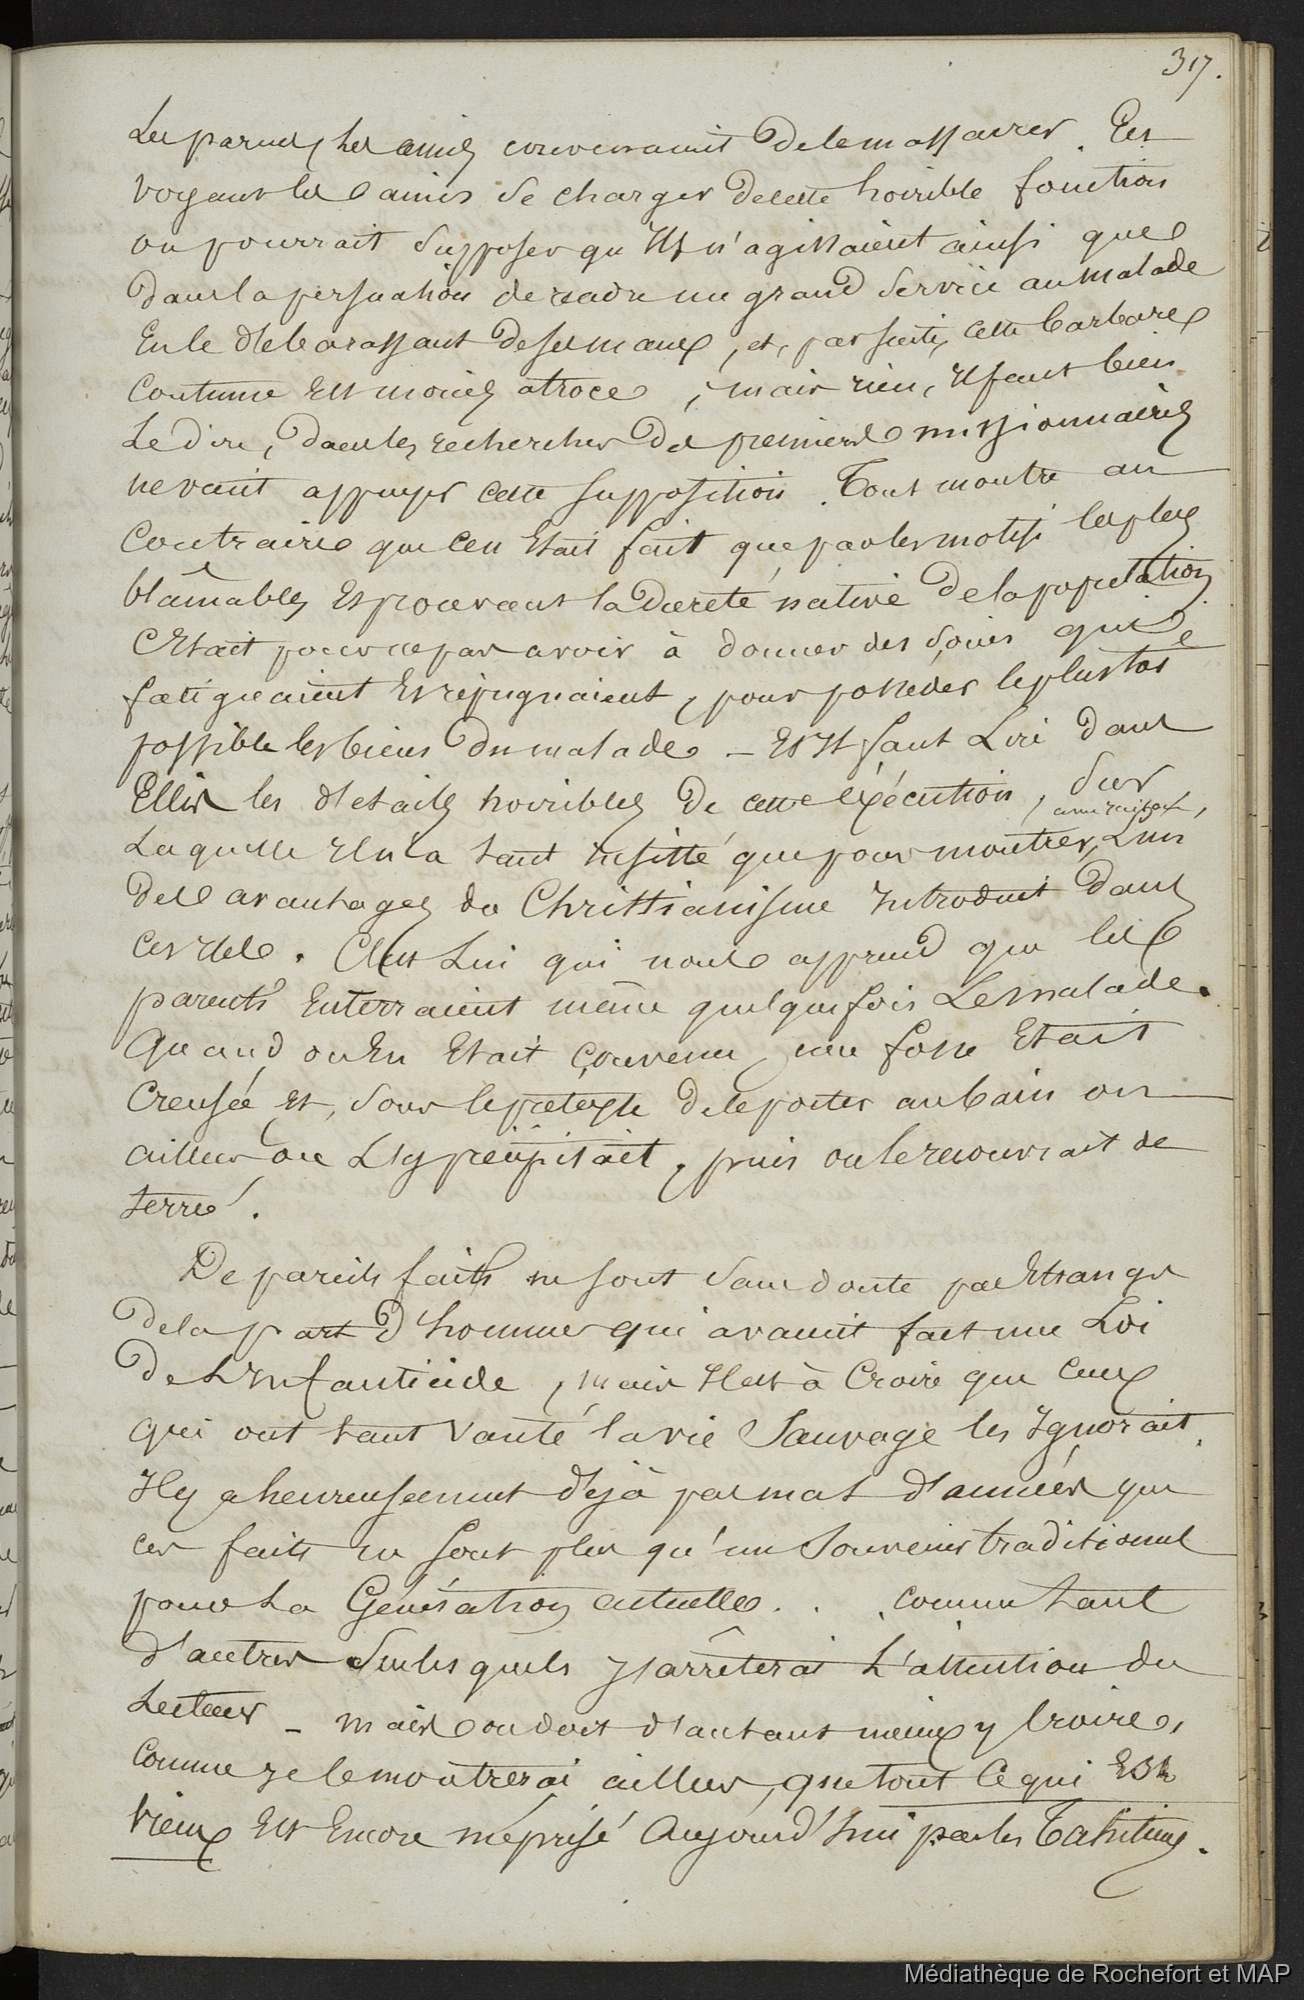 317.
Les parents, les amis convenaient de le massacrer. En
voyant les amis se charger de cette horrible fonction
on pourrait supposer qu'ils n'agissaient ainsi que
dans la persuation de rendre un grand service au malade
en le débarassant de ses maux, et, par suite, cette barbare
coutume est moins atroce, mais rien, il faut bien
le dire, dans les recherches des premiers missionnaires
ne vient appuyer cette supposition. Tout montre au
contraire que cela était fait que par les motifs les plus
blâmables et prouvant la dureté native de la population
C'était pour ne pas avoir à donner des soins qui
fatiguaient et répugnaient, pour posséder le plus tôt
possible les biens du malade - Et il faut lire dans
Ellis les détails horribles de cette éxécution, sur
laquelle il n'a tant insisté que pour montrer, avec raison, l'un
des avantages du Christianisme introduit dans
ces iles. C'est lui qui nous apprend que les
parents enterraient même quelquefois le malade.
Quand on en était convenu, une fosse était
creusée et, sous le prétexte de le porter au bain ou
ailleurs on l'y précipitait, puis on le recouvrait de
terre.
De pareils faits ne sont sans doute pas étranges
de la part d'hommes qui avaient fait une loi
de l'infanticide, mais il est à croire que ceux
qui ont tant vanté la vie sauvage les ignorait.
Il y a heureusement déjà pas mal d'années que
ces faits ne sont plus qu'un souvenir traditionnel
pour la génération actuelle . . . comme tant
d'autres sur lesquels j'arrêterai l'attention du
lecteur - mais on doit d'autant mieux y croire,
comme je le montrerai ailleurs, que tout ce qui est
vieux est encore méprisé aujourd'hui par les Tahitiens.
Médiathèque de Rochefort et MAP